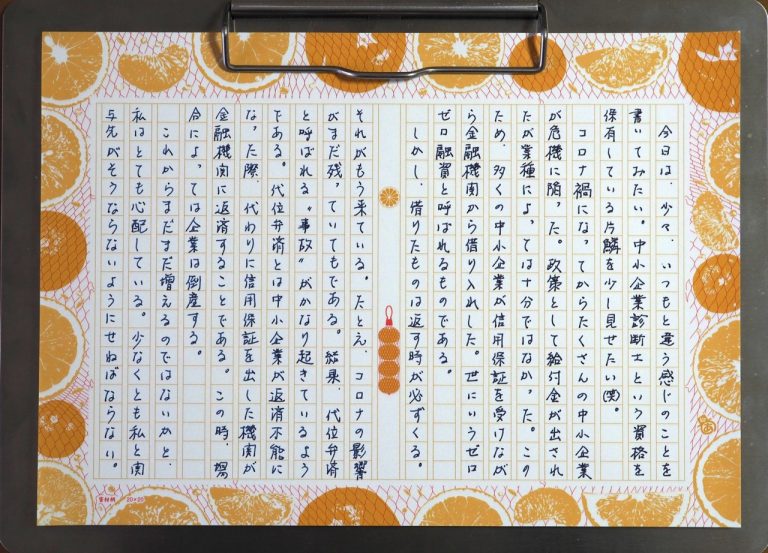 今日は、少々、いつもと違う感じのことを
書いてみたい。中小企業診断士という資格を
保有している片鱗を少し見せたい(笑)。
コロナ禍になってからたくさんの中小企業
が危機に陥った。政策として給付金が出され
たが業種によっては十分ではなかった。この
ため、多くの中小企業が信用保証を受けなが
ら金融機関から借り入れした。世にいうゼロ
ゼロ融資と呼ばれるものである。
しかし、借りたものは返す時が必ずくる。
それがもう来ている。たとえ、コロナの影響
がまだ残っていてもである。結果、代位弁済
と呼ばれる〝事故〟がかなり起きているよう
である。代位弁済とは中小企業が返済不能に
なった際、代わりに信用保証を出した機関が
金融機関に返済することである。この時、場
合によっては企業は倒産する。
これからまだまだ増えるのではないかと、
私はとても心配している。少なくとも私と関
与先がそうならないようにせねばならない。
20×20